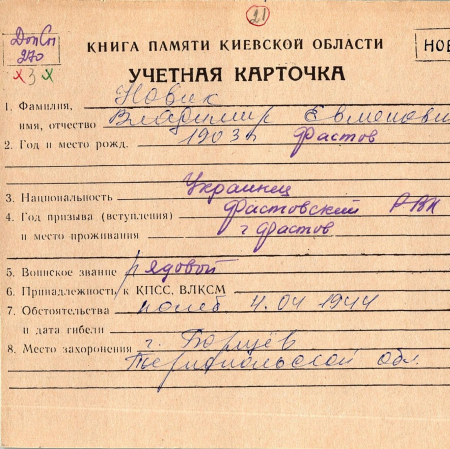 21
ДопСп
270
х 3 х
КНИГА ПАМЯТИ КИЕВСКОЙ ОБЛАСТИ
НОВ
УЧЕТНАЯ КАРТОЧКА
1. Фамилия, Новик
имя, отчество Владимир Евменови
2. Год и место рожд. 1903г Фастов
3. Национальность Украинец
4. Год призыва (вступления) Фастовский РВК
и место проживания г Фастов
5. Воинское звание рядовой
6. Принадлежность к КПСС, ВЛКСМ
7. Обстоятельства погиб 4.04 1944
и дата гибели
8. Место захоронения г. Борщев
Тернопольской обл.